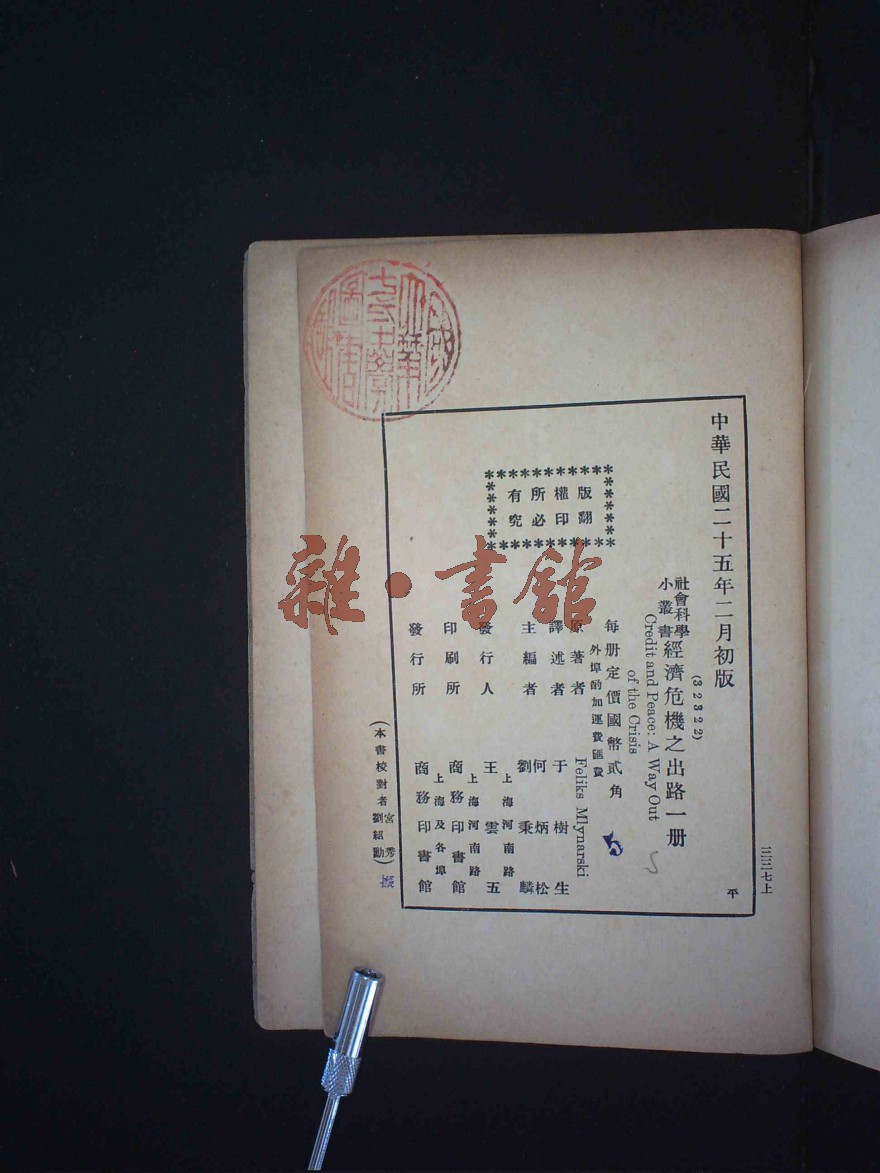 中華民國二十五年二月初版
(32322)
社會科學小叢書 經濟危機之出路一册
Credit and Peace: A Way Out
of the Crisis
每册定價國幣貳角
外埠酌加運費匯費
原著者 Feliks Mlynarski
譯述者 于樹生
主編者 何炳松 劉秉麟
發行人 王雲五
上海河南路
印刷所 商務印書館
上海河南路
發行所 商務印書館
上海及各埠
版權所有
翻印必究
(本書校對者 劉紹勳 宮秀)
平
三三七上
5
5
雜·書館